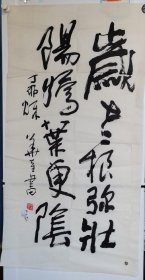 歲老根弥壯
陽驕葉更陰